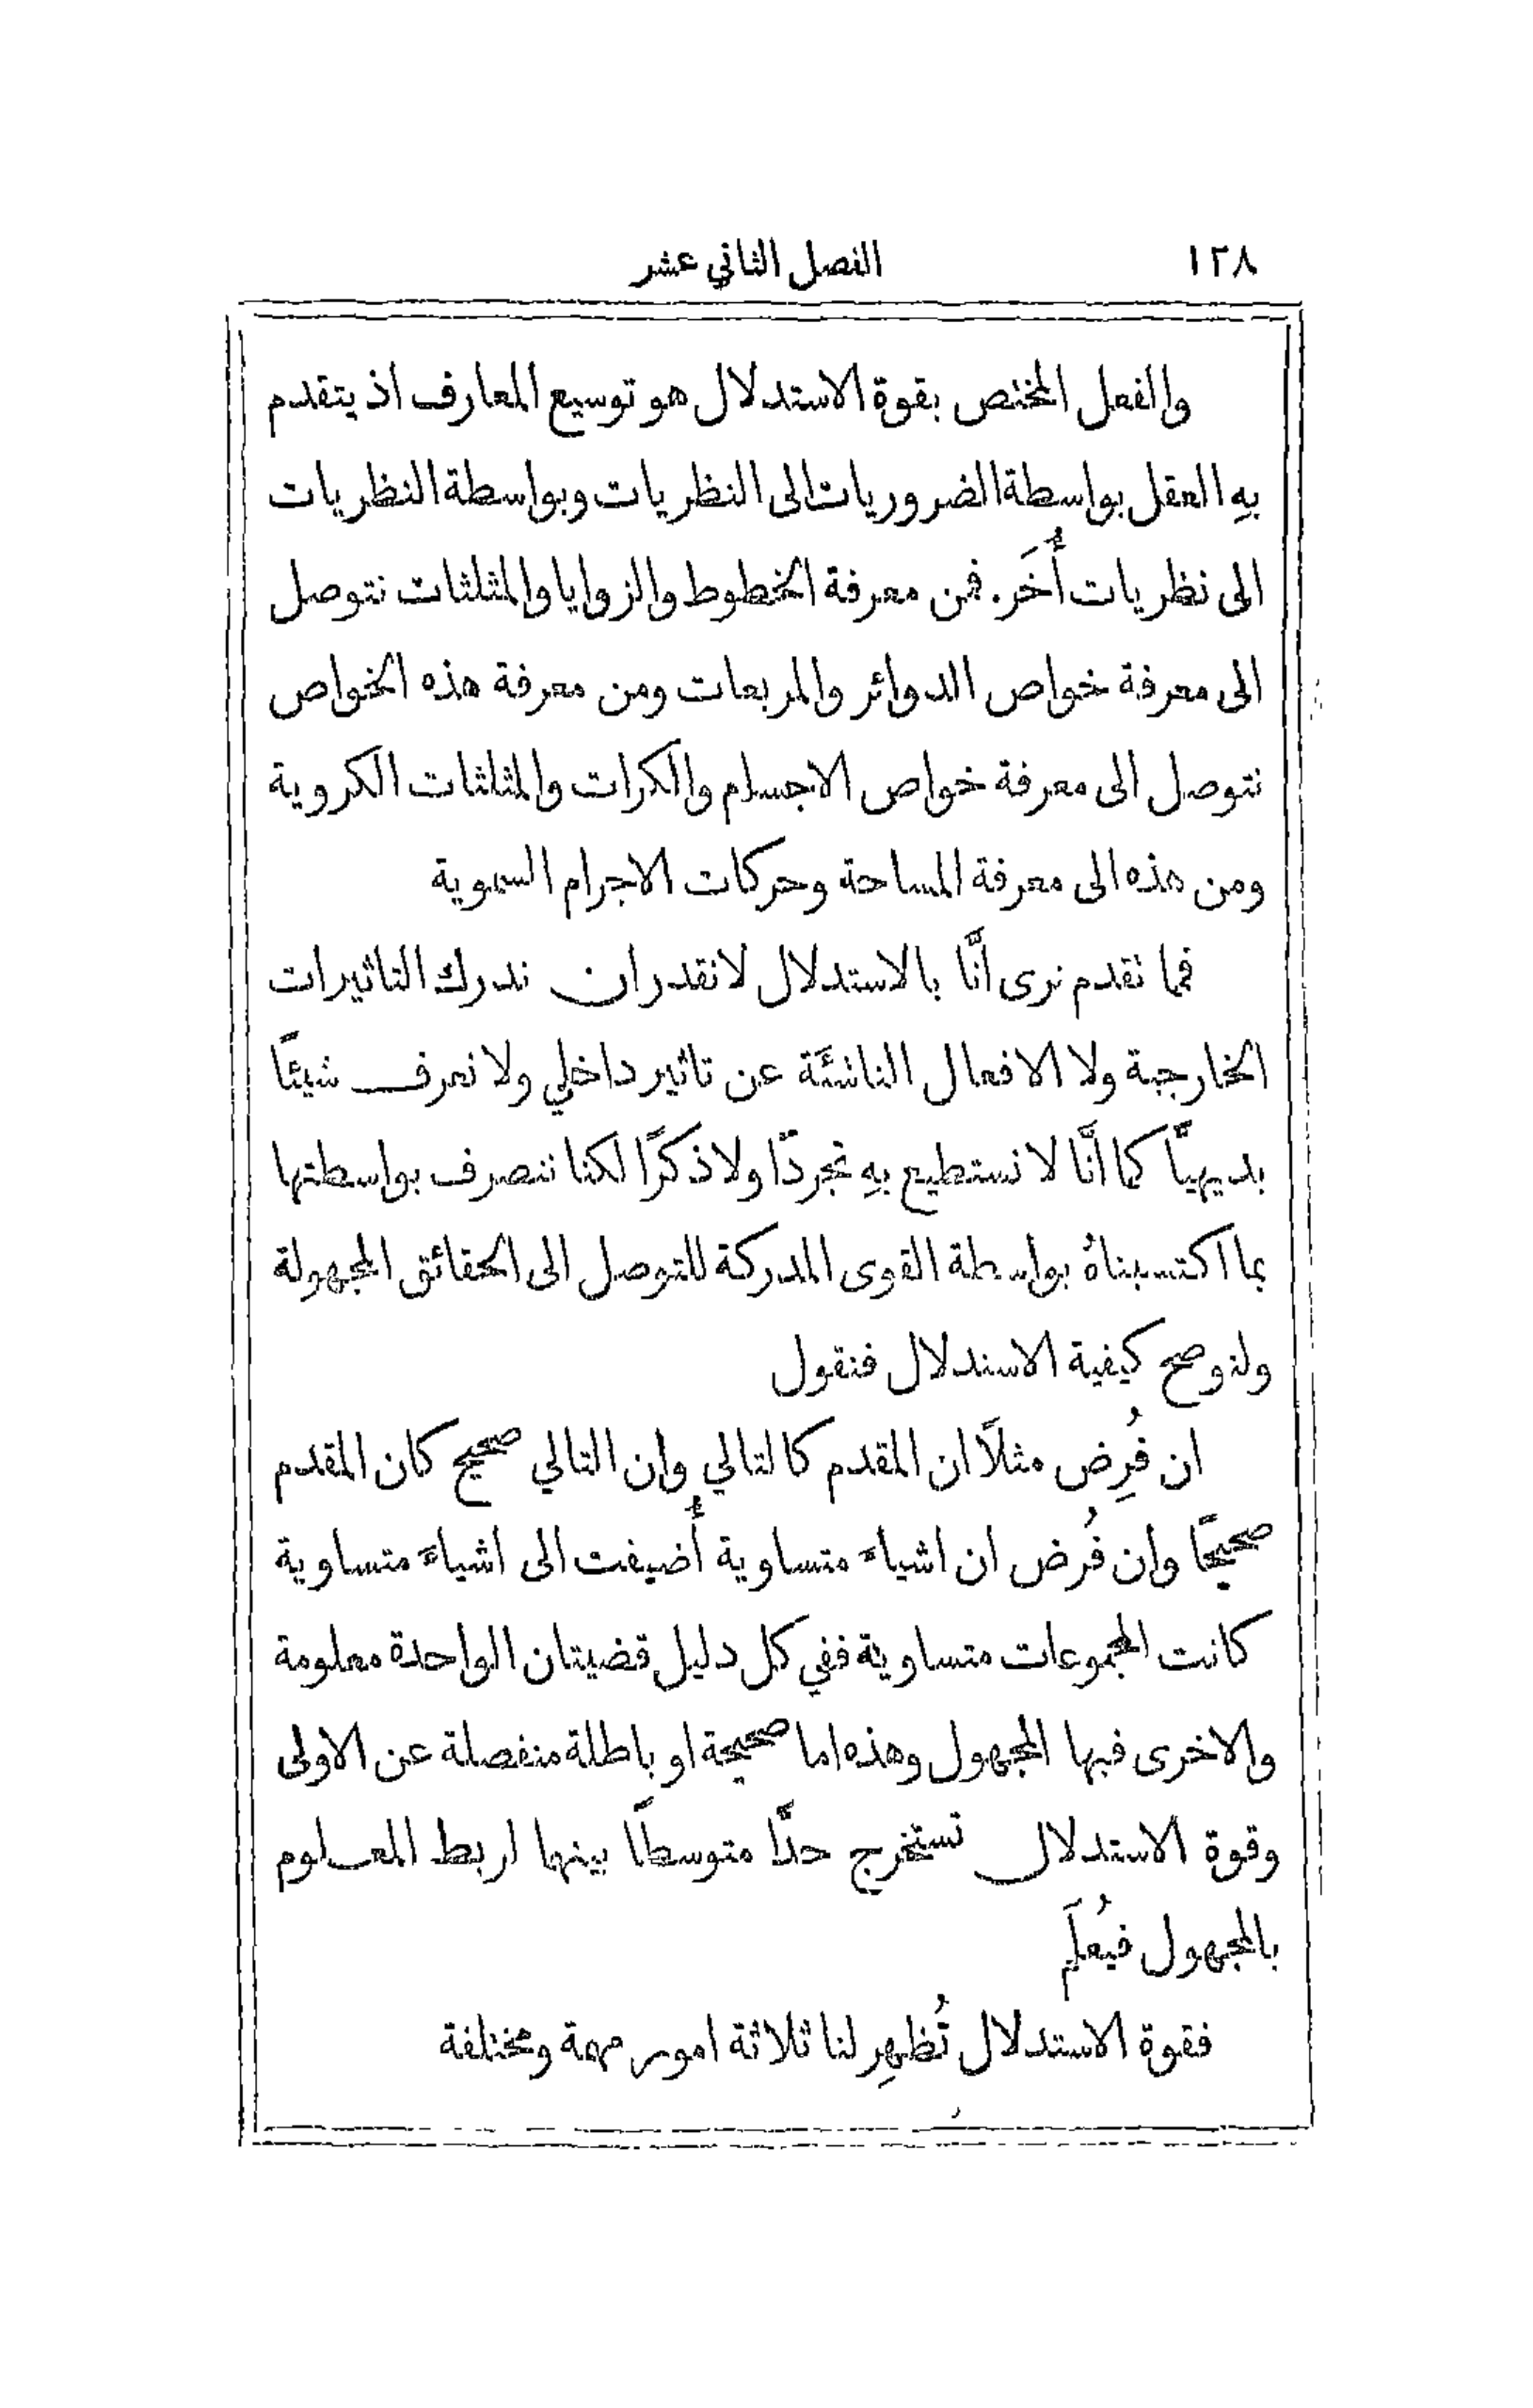 ١٢٨ الفصل الثاني عشر
والفعل المختص بقوة الاستدلال هو توسيع المعارف اذ يتقدم
بهِ العقل بواسطة الضروريات الى النظريات وبواسطة النظريات
الى نظريات أُخَر. فمن معرفة الخطوط والزوايا والمثلثات نتوصل
الى معرفة خواص الدوائر والمربعات ومن معرفة هذه الخواص
نتوصل الى معرفة خواص الاجسام والكرات والمثلثات الكروية
ومن هذه الى معرفة المساحة وحركات الاجرام السموية
فما تقدم نرى انَّا بالاستدلال لا نقدر ان ندرك التاثيرات
الخارجية ولا الافعال الناشئَة عن تاثير داخلي ولا نعرف شيئًا
بديهيًّا كما انَّا لا نستطيع بهِ تجردًا ولا ذكرًا لكنا نتصرف بواسطتها
بما اكتسبناهُ بواسطة القوى المدركة للتوصل الى الحقائق المجهولة
ولنوضح كيفية الاستدلال فنقول
ان فُرِض مثلًا ان المقدم كالتالي وان التالي صحيح كان المقدم
صحيحًا وان فُرض ان اشياءَ متساوية أُضيفت الى اشياءَ متساوية
كانت المجموعات متساوية ففي كل دليل قضيتان الواحدة معلومة
والاخرى فيها المجهول وهذه اما صحيحة او باطلة منفصلة عن الاولى
وقوة الاستدلال تستخرج حدًّا متوسطًا بينها لربط المعلوم
بالمجهول فيُعلَم
فقوة الاستدلال تُظهِر لنا ثلاثة امور مهمة ومختلفة